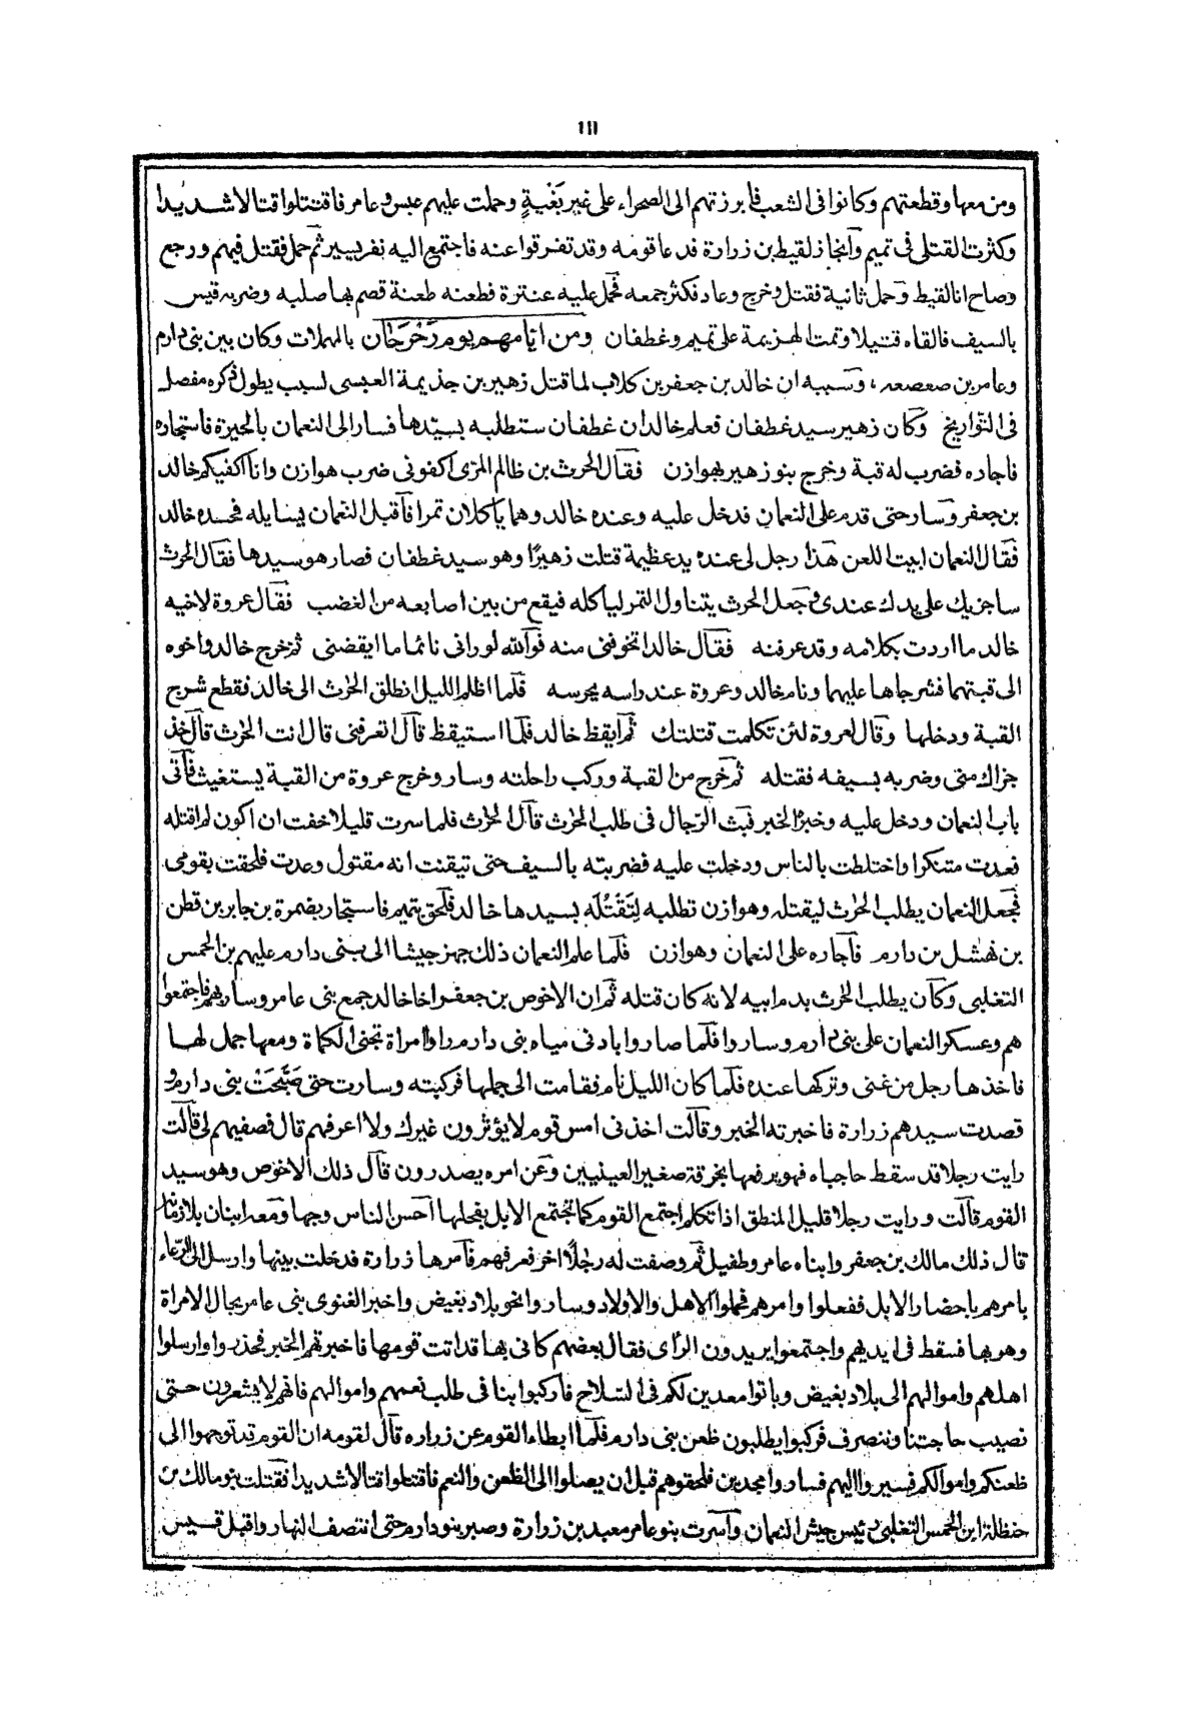 ١١١
ومن معها وقطعتهم وكانوا فى الشعب فابرزتهم الى الصحراء على غير بَغْيَةٍ وحملت عليهم عبس وعامر فاقتتلوا قتالا شديدا
وكثرت القتلى فى تميم وانحاز لقيط بن زرارة فدعا قومه وقد تفرقوا عنه فاجتمع اليه نفر يسير ثم حمل فقتل فيهم ورجع
وصاح انا لقيط وحمل ثانية فقتل وخرج وعاد فكثر جمعه فحمل عليه عنترة فطعنه طعنة قصم بها صلبه وضربه قيس
بالسيف فالقاه قتيلا وتمت الهزيمة على تميم وغطفان ومن ايامهم يوم رَحْرَحَان بالمهملات وكان بين بنى دارم
وعامر بن صعصعه ، وسببه ان خالد بن جعفر بن كلاب لما قتل زهير بن جذيمة العبسى لسبب يطول ذكره مفصلا
فى التواريخ وكان زهير سيد غطفان فعلم خالد ان غطفان ستطلبه بسيّدها فسار الى النعمان بالحيرة فاستجاره
فاجاره فضرب له قبة وخرج بنو زهير بهوازن فقال الحرث بن ظالم المرى اكفونى ضرب هوازن وانا اكفيكم خالد
بن جعفر وسار حتى قدم على النعمان فدخل عليه وعنده خالد وهما ياكلان تمرا فاقبل النعمان يسايله فحسده خالد
فقال النعمان ابيت اللعن هذا رجل لى عنده يد عظيمة قتلت زهيرًا وهو سيد غطفان فصار هو سيدها فقال الحرث
ساجزيك على يدك عندى وجعل الحرث يتناول التمر لياكله فيقع من بين اصابعه من الغضب فقال عروة لاخيه
خالد ما اردت بكلامه وقد عرفته فقال خالد اتخوفنى منه فوالله لو رانى نائما ما ايقضنى ثم خرج خالد واخوه
الى قبتهما فشرجاها عليهما ونام خالد وعروة عند راسه يحرسه فلما اظلم الليل انطلق الحرث الى خالد فقطع شرج
القبة ودخلها وقال لعروة لئن تكلمت قتلتك ثم ايقظ خالد فلما استيقظ قال اتعرفنى قال انت الحرث قال خذ
جزاك منى وضربه بسيفه فقتله ثم خرج من القبة وركب راحلته وسار وخرج عروة من القبة يستغيث فاتى
باب النعمان ودخل عليه وخبرّ الخبر فبث الرّجال فى طلب الحرث قال الحرث فلما سرت قليلا خفت ان اكون لم اقتله
فعدت متنكرا واختلطت بالناس ودخلت عليه فضربته بالسيف حتى تيقنت انه مقتول وعدت فلحقت بقومى
فجعل النعمان يطلب الحرث ليقتله وهوازن تطلبه لِتَقْتُلَه بسيدها خالد فلحق بتميم فاستجار بضمرة بن جابر بن قطن
بن نهشل بن دارم فاجاره على النعمان وهوازن فلما علم النعمان ذلك جهز جيشا الى بنى دارم عليهم بن الخمس
التغلبى وكان يطلب الحرث بدم ابيه لانه كان قتله ثم ان الاخوص بن جعفر اخا خالد جمع بنى عامر وسار بهم فاجتمعوا
هم وعسكر النعمان على بنى دارم وساروا فلما صاروا بادنى مياه بنى دارم راوا امراة تجنى الكماة ومعها جمل لها
فاخذها رجل من غنى وتركها عنده فلما كان الليل نام فقامت الى جملها فركبته وسارت حتى صَبَّحَتْ بنى دارم و
قصدت سيدهم زرارة فاخبرته الخبر وقالت اخذنى امس قوم لا يؤثرون غيرك ولا اعرفهم قال فصفيهم لى قالت
رايت رجلا قد سقط حاجباه فهو يرفعها بخرقة صغير العينين وعن امره يصدرون قال ذلك الاخوص وهو سيد
القوم قالت ورايت رجلا قليل المنطق اذا تكلم اجتمع القوم كما تجتمع الابل بفحلها احسن الناس وجها ومعه ابنان يلازمانه
قال ذلك مالك بن جعفر وابناه عامر وطفيل ثم وصفت له رجلًا اخر فعرفهم فامرها زرارة فدخلت بيتها وارسل الى الرّعاء
يامرهم باحضار الابل ففعلوا وامرهم فحملوا الاهل والاولاد وساروا نحو بلاد بغيض واخبر الغنوى بنى عامر بحال الامراة
وهربها فسقط فى ايديهم واجتمعوا يريدون الراى فقال بعضهم كانى بها قد اتت قومها فاخبرتهم الخبر فحذروا وارسلوا
اهلهم واموالهم الى بلاد بغيض وباتوا معدين لكم فى السّلاح فاركبوا بنا فى طلب نعمهم واموالهم فانهم لا يشعرون حتى
نصيب حاجتنا وننصرف فركبوا يطلبون ظعن بنى دارم فلما ابطاء القوم عن زراره قال لقومه ان القوم قد توجهوا الى
ظعنكم واموالكم فسيروا اليهم فساروا مجدين فلحقوهم قبل ان يصلوا الى الظعن والنعم فاقتتلوا قتالا شديدا فقتلت بنو مالك بن
حنظلة ابن الخمس التغلبى رئيس جيش النعمان واسرت بنو عامر معبد بن زرارة وصبر بنو دارم حتى انتصف النهار واقبل قيس